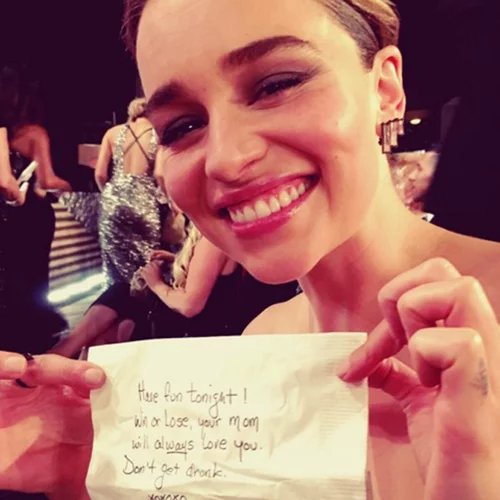 Have fun tonight!
Win or Lose, your mom
will always love you.
Don't get drunk.
xoxoxo